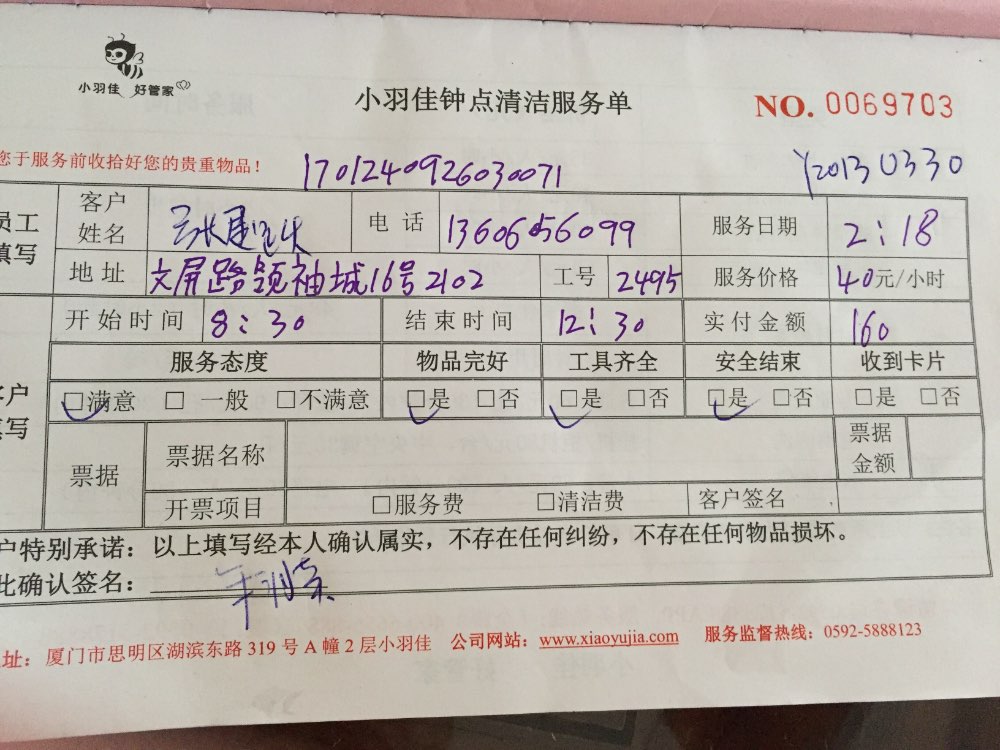 小羽佳 好管家
小羽佳钟点清洁服务单
NO. 0069703
您于服务前收拾好您的贵重物品！
1701240926030071
Y20130330
员工填写
客户姓名
电话 13606056099
服务日期 2:18
地址 文屏路领袖城16号2102
工号 2495
服务价格 40元/小时
开始时间 8:30
结束时间 12:30
实付金额 160
服务态度 物品完好 工具齐全 安全结束 收到卡片
□满意 □ 一般 □不满意 □是 □否 □是 □否 □是 □否 □是 □否
客户填写
票据
票据名称
票据金额
开票项目 □服务费 □清洁费 客户签名
户特别承诺：以上填写经本人确认属实，不存在任何纠纷，不存在任何物品损坏。
此确认签名：
址：厦门市思明区湖滨东路 319 号 A 幢 2 层小羽佳 公司网站：www.xiaoyujia.com 服务监督热线：0592-5888123